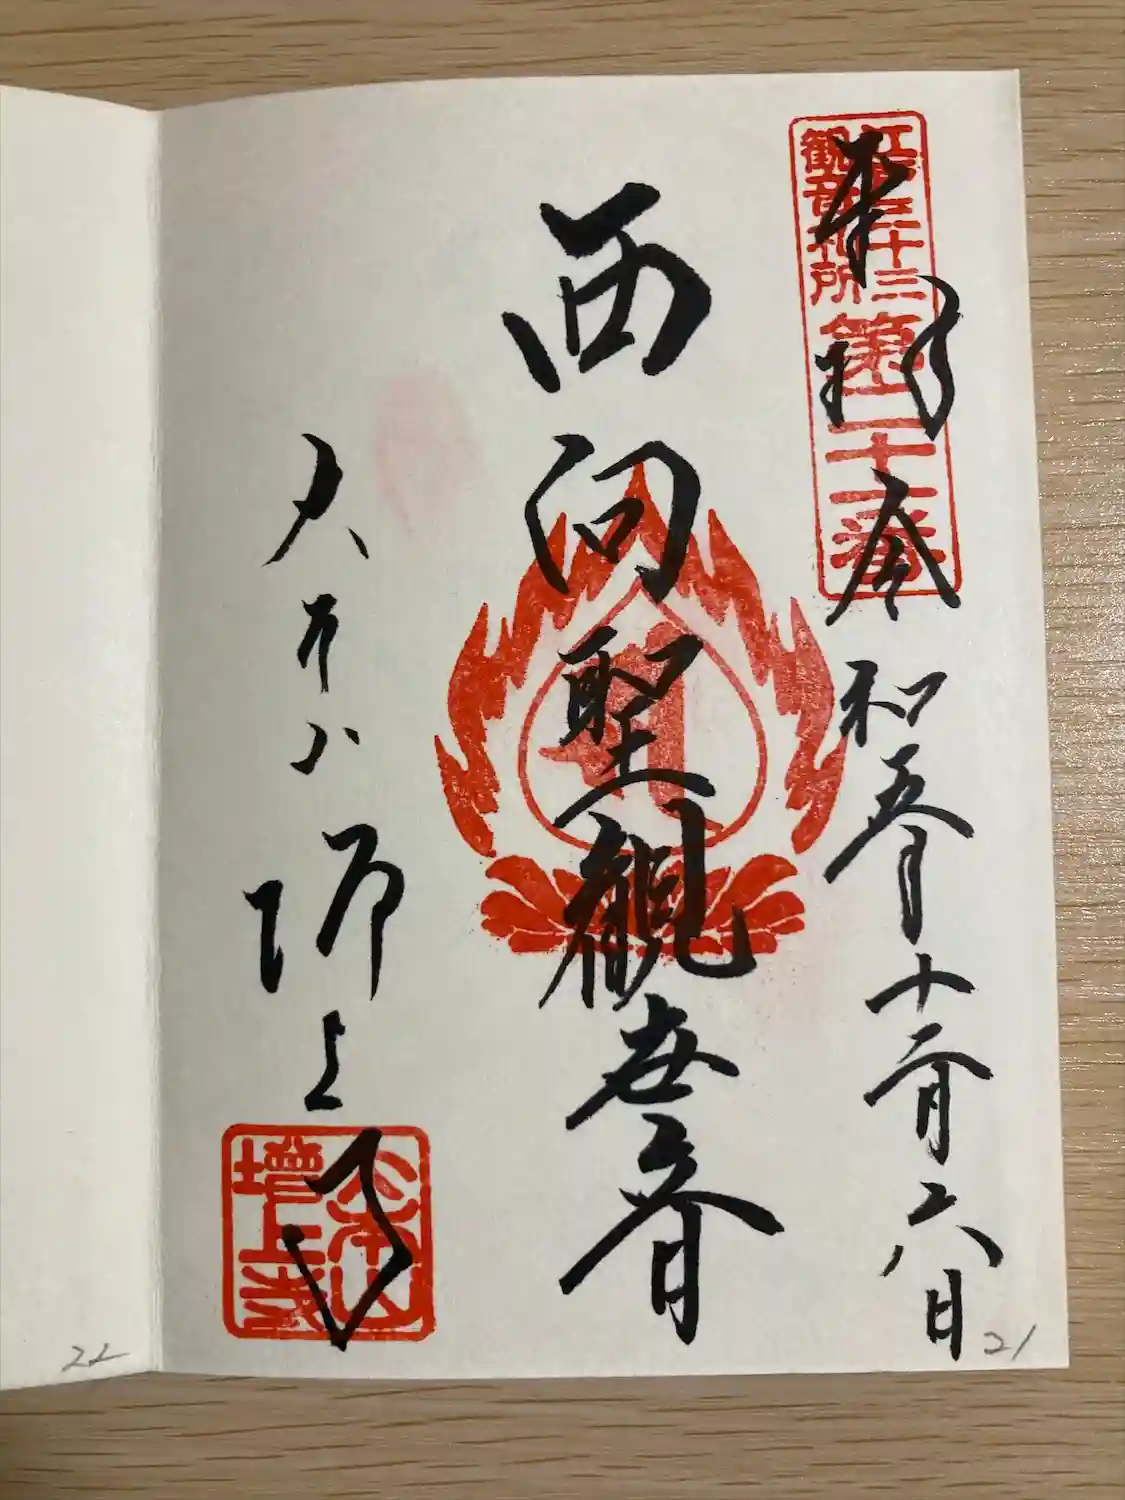 江戸三十三
観音札所
第二十一番
奉拝
令和五年十二月六日
西向聖観世音
大本山増上寺
大本山
増上寺
21
22